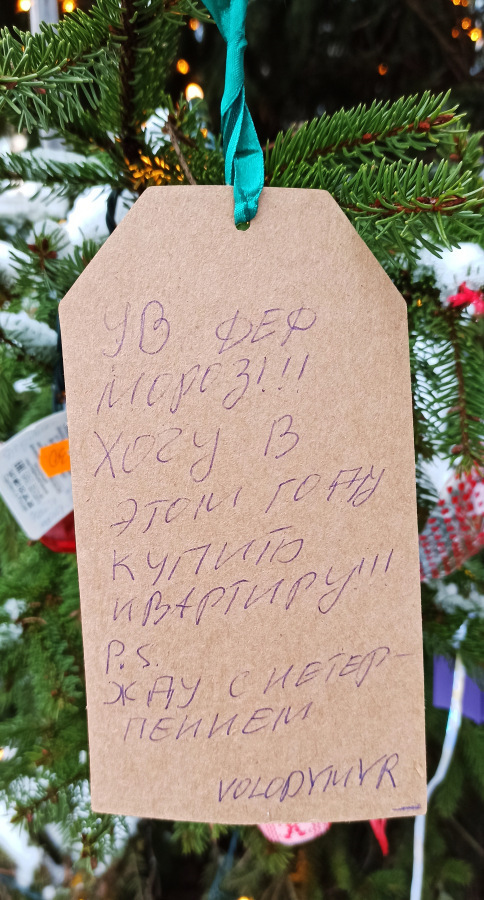 УВ ДЕД
МОРОЗ!!!
ХОЧУ В
ЭТОМ ГОДУ
КУПИТЬ
КВАРТИРУ!!!
P.S.
ЖДУ С НЕТЕР-
ПЕНИЕМ
VOLODYMYR